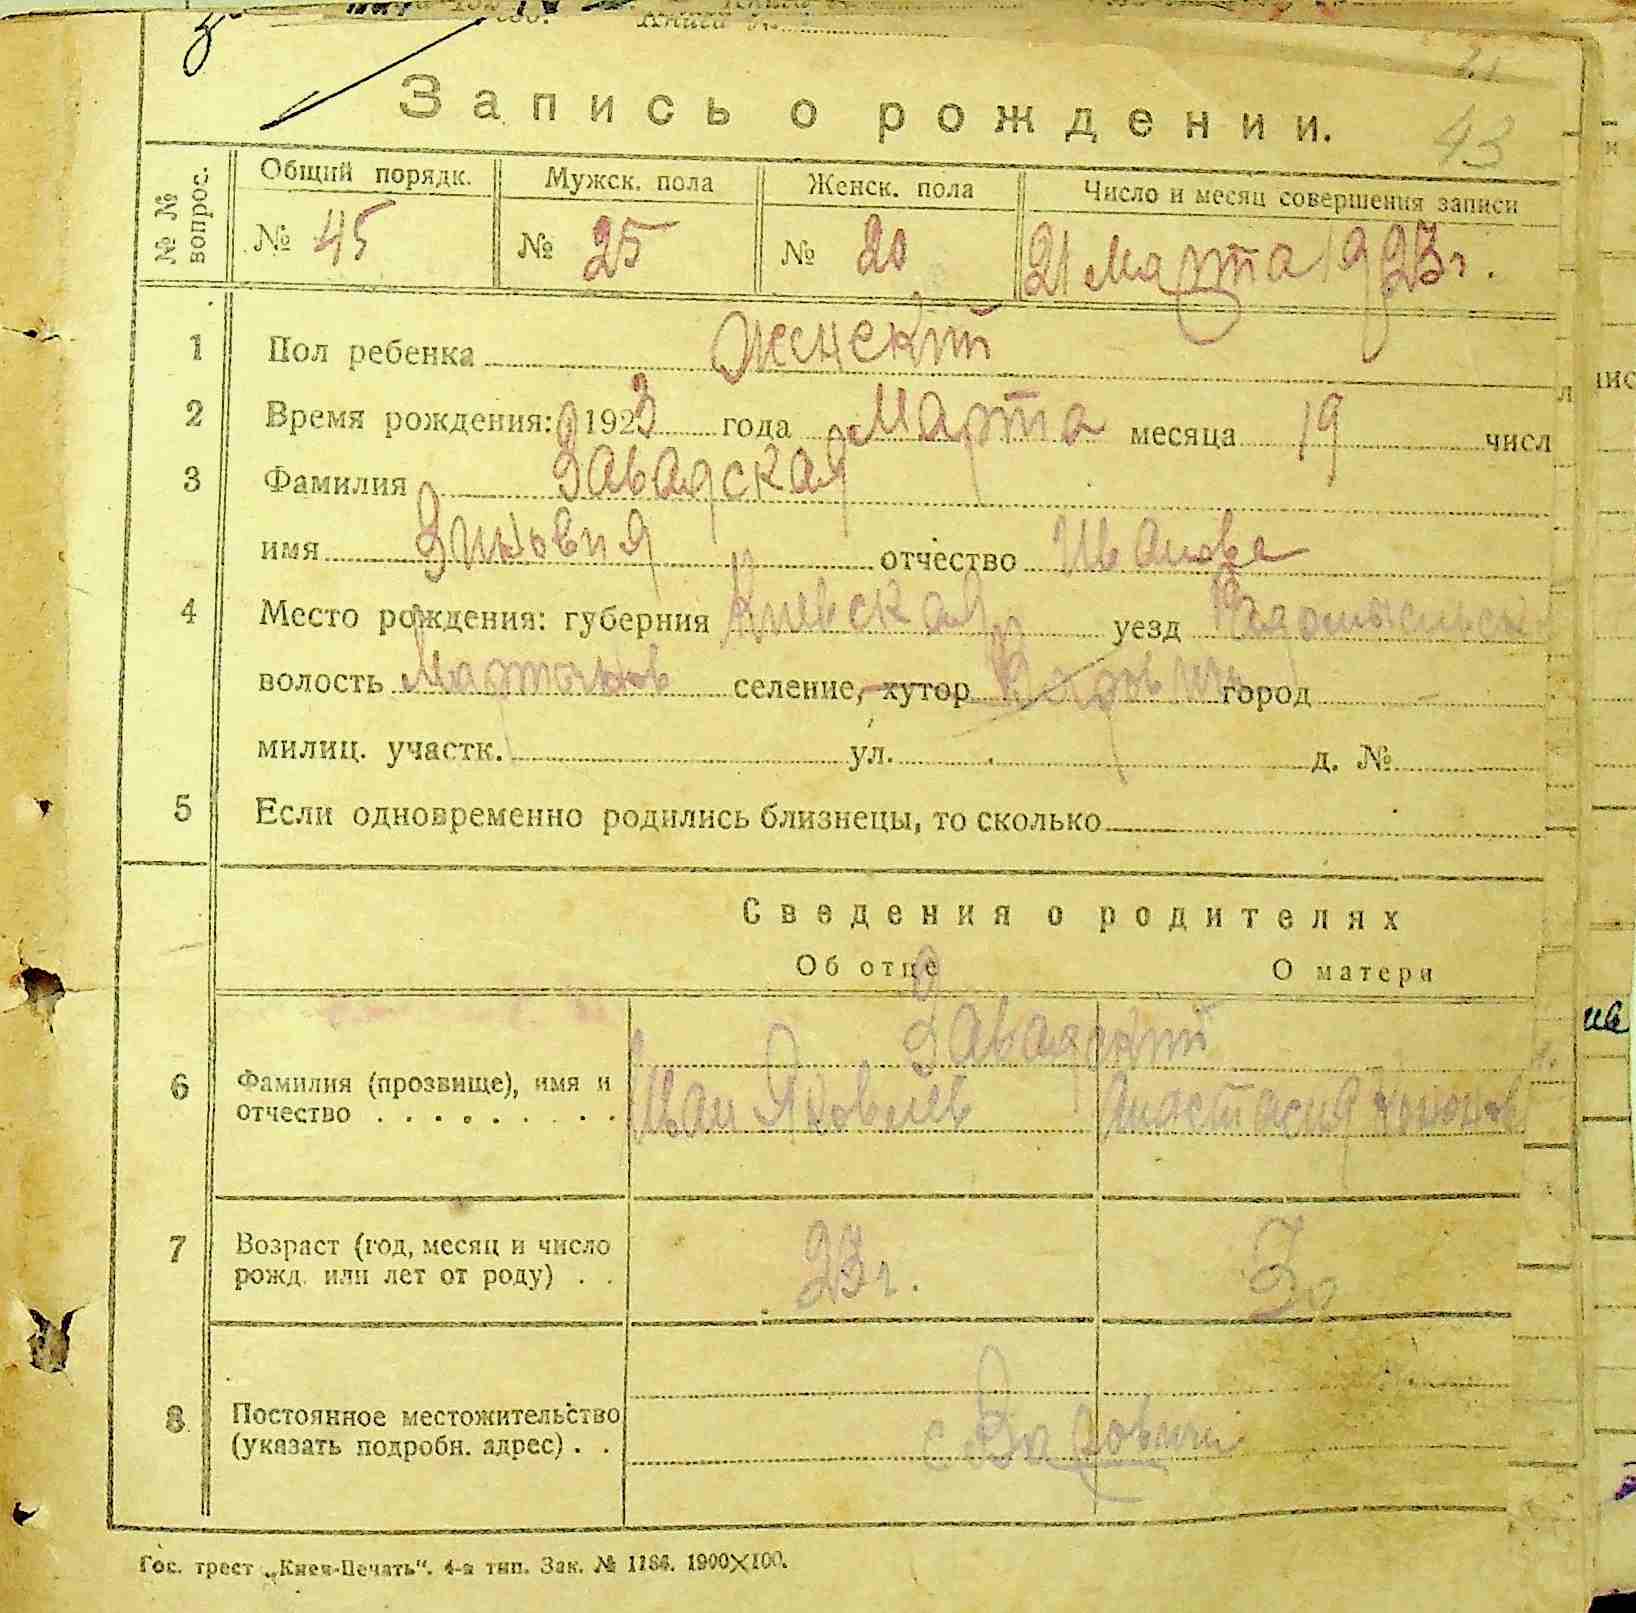 Книга
Запись о рождении.
43
№ № вопрос.
Общий порядк. Мужск. пола Женск. пола Число и месяц совершения записи
№ 45 № 25 № 20 21 Марта 1923 г.
1 Пол ребенка Женский
2 Время рождения: 1923 года Марта месяца 19 числ
3 Фамилия Завадская
имя Зиновия отчество Иванова
4 Место рождения: губерния Киевская уезд Радомысльск
волость Мартынов селение, хутор город
милиц. участк. ул. д. №
5 Если одновременно родились близнецы, то сколько
Сведения о родителях
Об отце О матери
Завадский
6 Фамилия (прозвище), имя и отчество Иван Яковлев Анастасия
7 Возраст (год, месяц и число рожд. или лет от роду) 23 г.
8 Постоянное местожительство (указать подробн. адрес) с.
Гос. трест „Киев-Печать“. 4-я тип. Зак. № 1186. 1900X100.